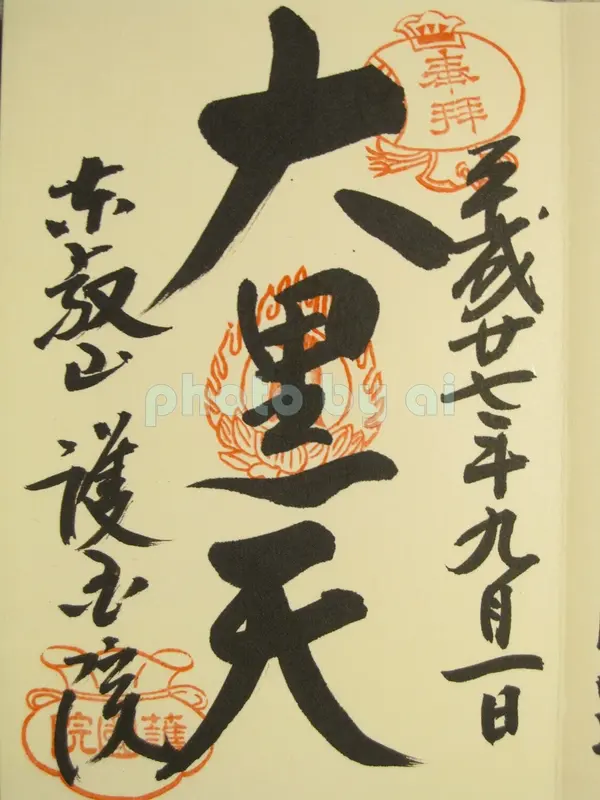 奉拝
平成廿七年九月一日
大黒天
東叡山 護国院
護國院
photo by ai